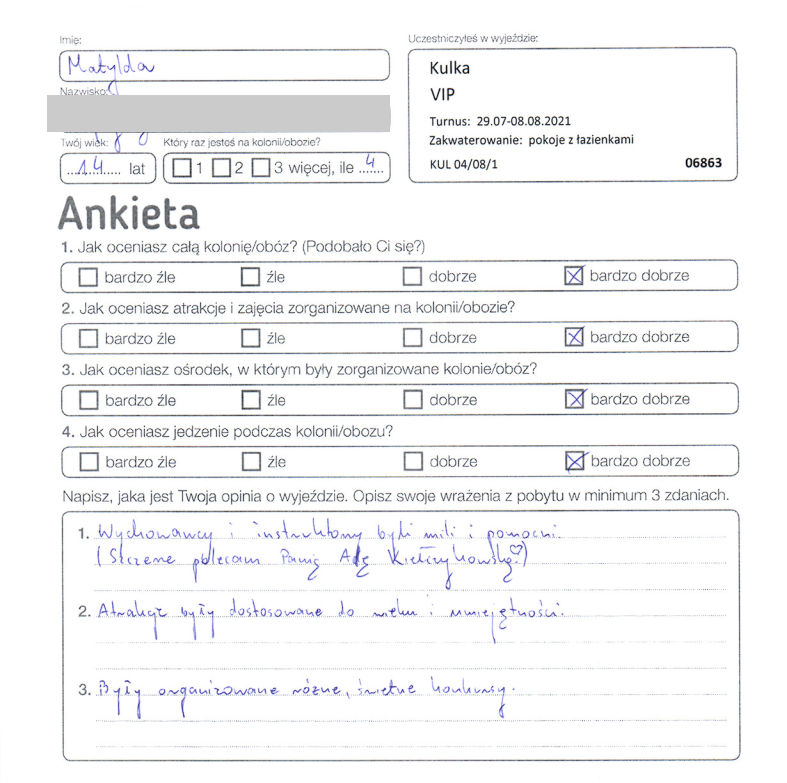 Imię:
Matylda
Uczestniczyłeś w wyjeździe:
Kulka
VIP
Turnus: 29.07-08.08.2021
Zakwaterowanie: pokoje z łazienkami
KUL 04/08/1 06863
Nazwisko:
Twój wiek: Który raz jesteś na kolonii/obozie?
14 lat 1 2 3 więcej, ile 4
Ankieta
1. Jak oceniasz całą kolonię/obóz? (Podobało Ci się?)
bardzo źle źle dobrze bardzo dobrze
2. Jak oceniasz atrakcje i zajęcia zorganizowane na kolonii/obozie?
bardzo źle źle dobrze bardzo dobrze
3. Jak oceniasz ośrodek, w którym były zorganizowane kolonie/obóz?
bardzo źle źle dobrze bardzo dobrze
4. Jak oceniasz jedzenie podczas kolonii/obozu?
bardzo źle źle dobrze bardzo dobrze
Napisz, jaka jest Twoja opinia o wyjeździe. Opisz swoje wrażenia z pobytu w minimum 3 zdaniach.
1. Wychowawcy i instruktorzy byli mili i pomocni.
(Szczerze polecam Panią Adę
2. Atrakcje były dostosowane do wieku i umiejętności.
3. Były organizowane różne, świetne konkursy.